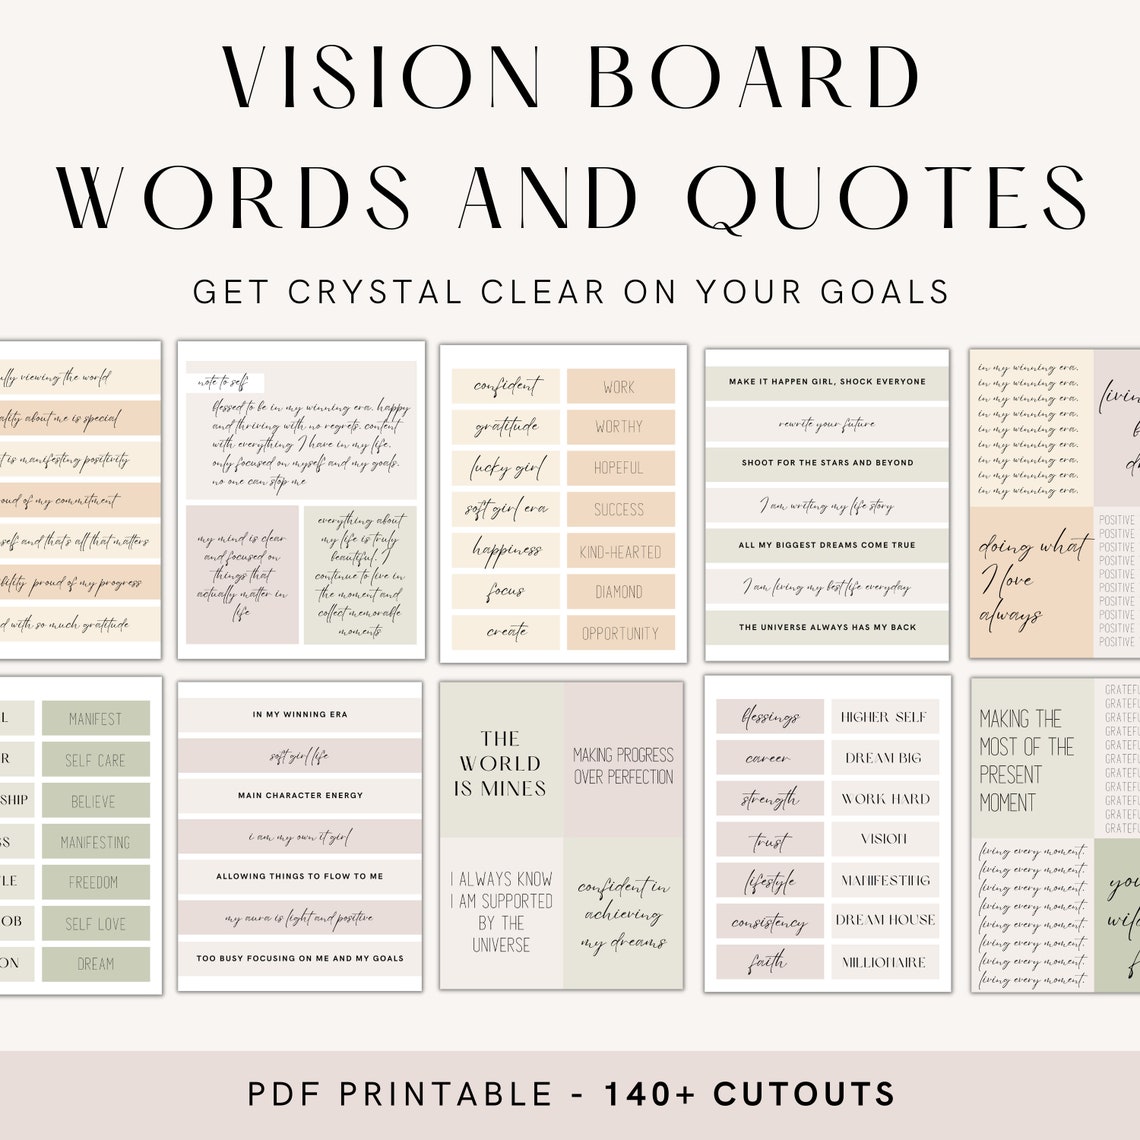 VISION BOARD
WORDS AND QUOTES
GET CRYSTAL CLEAR ON YOUR GOALS
viewing the world
about me is special
is manifesting positivity
of my commitment
and that's all that matters
proud of my progress
with so much gratitude
note to self
blessed to be in my winning era. happy
and thriving with no regrets. content
with everything I have in my life.
only focused on myself and my goals.
no one can stop me
my mind is clear
and focused on
things that
actually matter in
life
everything about
my life is truly
beautiful. I
continue to live in
the moment and
collect memorable
moments
confident
WORK
gratitude
WORTHY
lucky girl
HOPEFUL
soft girl era
SUCCESS
happiness
KIND-HEARTED
focus
DIAMOND
create
OPPORTUNITY
MAKE IT HAPPEN GIRL, SHOCK EVERYONE
rewrite your future
SHOOT FOR THE STARS AND BEYOND
I am writing my life story
ALL MY BIGGEST DREAMS COME TRUE
I am living my best life everyday
THE UNIVERSE ALWAYS HAS MY BACK
in my winning era.
in my winning era.
in my winning era.
in my winning era.
in my winning era.
in my winning era.
in my winning era.
in my winning era.
in my winning era.
doing what
I love
always
POSITIVE
POSITIVE
POSITIVE
POSITIVE
POSITIVE
POSITIVE
POSITIVE
POSITIVE
POSITIVE
POSITIVE
MANIFEST
SELF CARE
BELIEVE
MANIFESTING
FREEDOM
JOB
SELF LOVE
DREAM
IN MY WINNING ERA
soft girl life
MAIN CHARACTER ENERGY
i am my own it girl
ALLOWING THINGS TO FLOW TO ME
my aura is light and positive
TOO BUSY FOCUSING ON ME AND MY GOALS
THE
WORLD
IS MINES
MAKING PROGRESS
OVER PERFECTION
I ALWAYS KNOW
I AM SUPPORTED
BY THE
UNIVERSE
confident in
achieving
my dreams
blessings
HIGHER SELF
career
DREAM BIG
strength
WORK HARD
trust
VISION
lifestyle
MANIFESTING
consistency
DREAM HOUSE
faith
MILLIONAIRE
MAKING THE
MOST OF THE
PRESENT
MOMENT
GRATEFU
GRATEFU
GRATEFU
GRATEFU
GRATEFU
GRATEFU
GRATEFU
GRATEFU
GRATEFU
GRATEFU
GRATEFU
living every moment.
living every moment.
living every moment.
living every moment.
living every moment.
living every moment.
living every moment.
living every moment.
PDF PRINTABLE - 140+ CUTOUTS